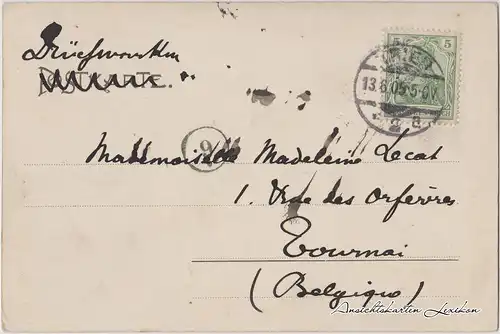 Briefmarken
POSTKARTE.
5 5
TRIER
13.6.05.5-6N.
* 2 a
6
Mademoiselle Madeleine Lecat
1. Rue des Orfèvres
Tournai
(Belgique)
Ansichtskarten Lexikon